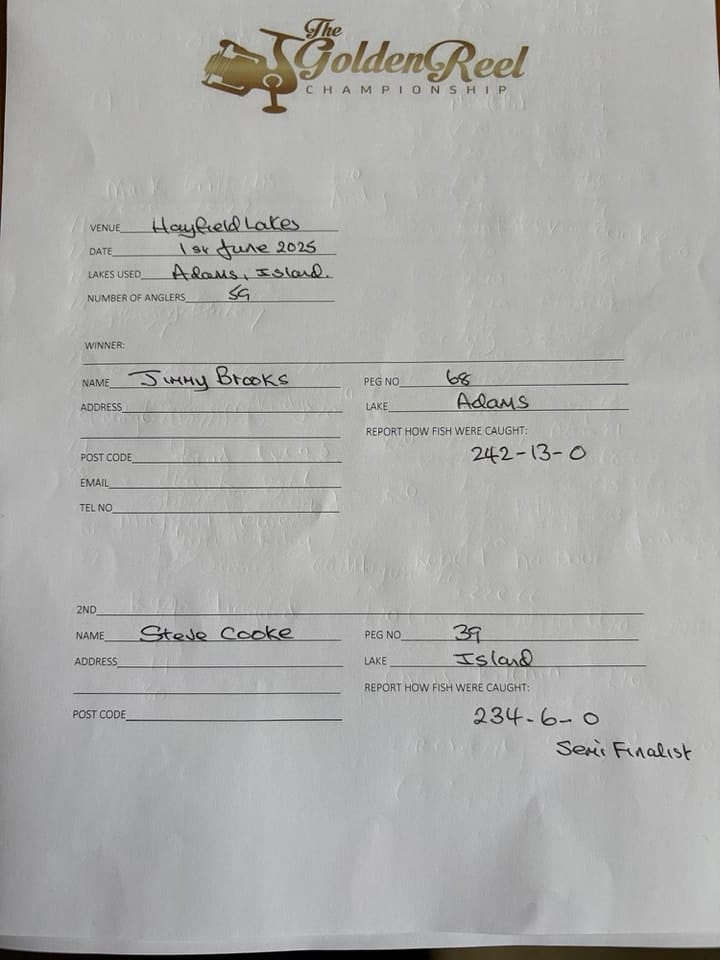 The
Golden Reel
CHAMPIONSHIP
VENUE Hayfield Lakes
DATE 1st June 2025
LAKES USED Adams, Island.
NUMBER OF ANGLERS 59
WINNER:
NAME Jimmy Brooks PEG NO 68
ADDRESS LAKE Adams
REPORT HOW FISH WERE CAUGHT:
POST CODE 242-13-0
EMAIL
TEL NO
2ND
NAME Steve Cooke PEG NO 39
ADDRESS LAKE Island
REPORT HOW FISH WERE CAUGHT:
POST CODE 234-6-0
Semi Finalist